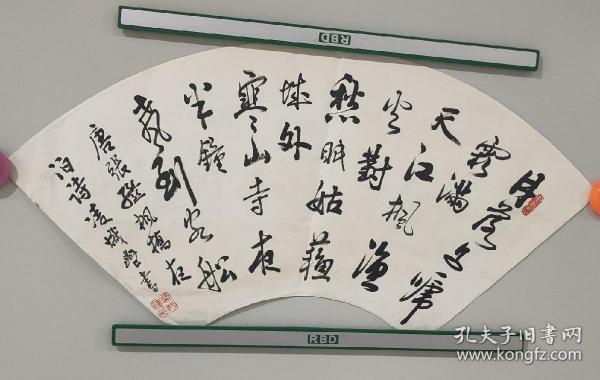 月落乌啼
霜满
天江枫渔
火对
愁眠姑苏
城外
寒山寺夜
半钟
声到客船
唐张继枫桥夜
泊诗凌
RBD
RBD
孔夫子旧书网
www.kongfz.com